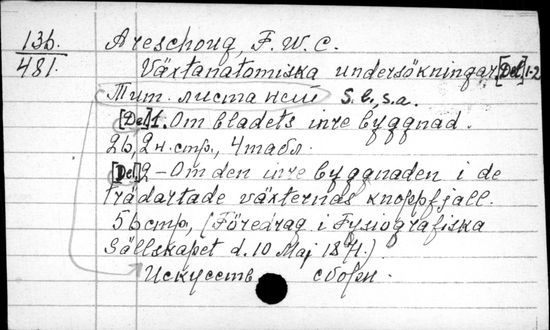 136.
481.
Areschoug, F. W. C.
Växtanatomiska undersökningar. [Del] 1-2
Тит. листа неш S. l., s. a.
[Del] 1. Om bladets inre byggnad.
2б, 2 н. стр., 4 табл.
[Del] 2 - Om den inre byggnaden i de
trädartade växternas knoppfjall.
5б стр, (Föredrag i Fysiografiska
Sällskapet d. 10 Maj 1871.)
Искусств сборн.